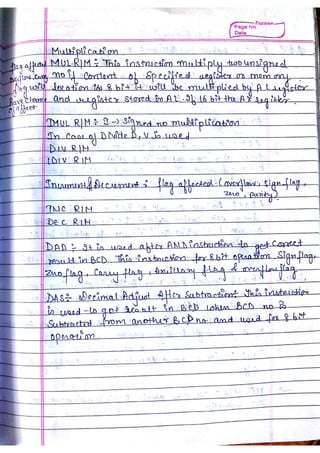 Page No.
Date
Multiplication
MUL R/M ÷ This instruction multiply two unsigned
no if content of specified register or memory
location is 8 bit it will be multiplied by AL register
and register stored in AL. If 16 bit the AX register
flag affected
overflow, carry
flag will
have chance
of affect
IMUL R/M ÷ I → signed no multiplication
In case of Divide D, V is used
DIV R/M
IDIV R/M
Increment & Decrement : flag affected (overflow, sign flag,
zero, parity)
INC R/M
DEC R/M
DAD ÷ It is used after AND instruction to get correct
result in BCD. This instruction for 8 bit operation sign flag,
zero flag, carry flag, Auxillary flag & overflow flag
DAS ÷ Decimal Adjust After Subtraction: This instruction
is used to got result in BCD when BCD no is
subtracted from another BCD no. and used for 8 bit
operation